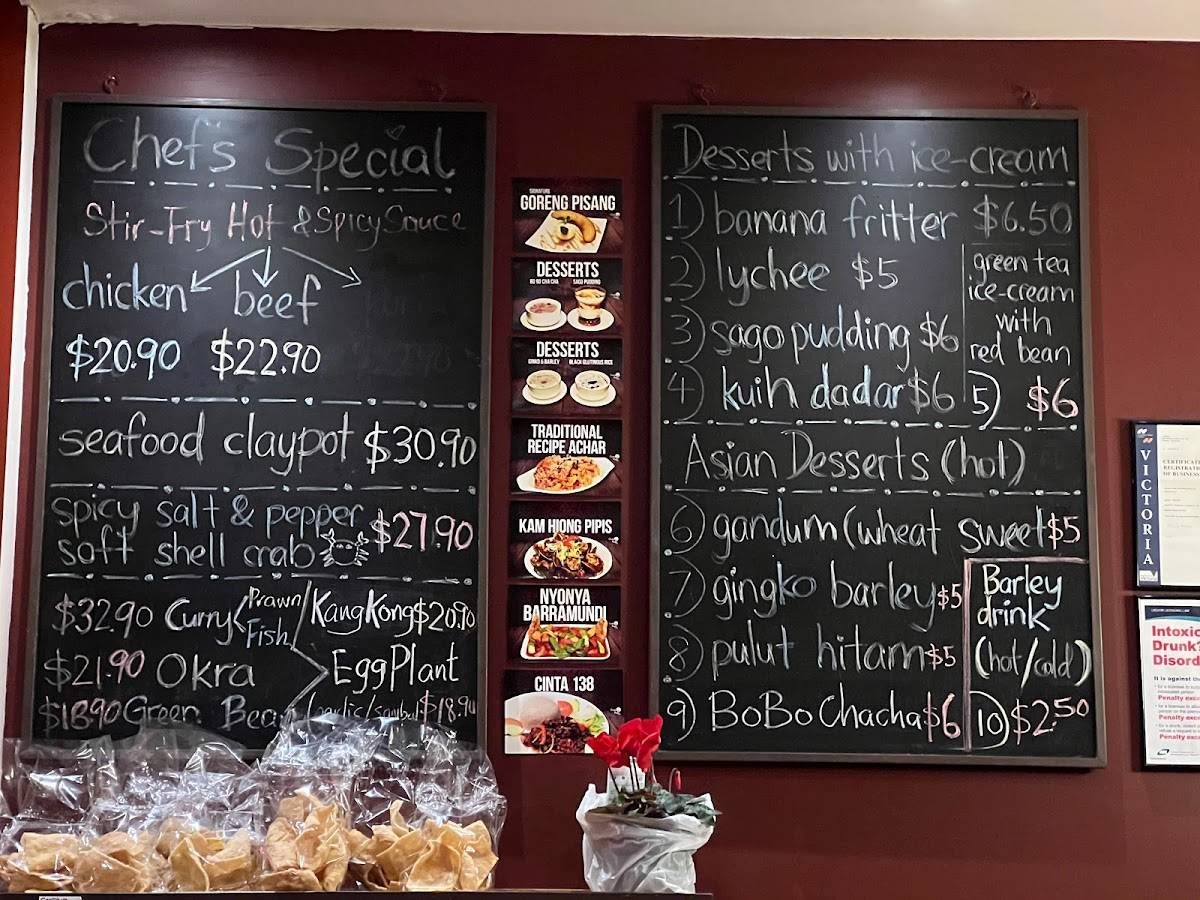 Chef's Special
Stir-Fry Hot & Spicy Sauce
chicken beef
$20.90 $22.90
seafood claypot $30.90
spicy salt & pepper
soft shell crab $27.90
$32.90 Curry Prawn / Fish
KangKong $20.90
$21.90 Okra
EggPlant
$18.90 Green Bean
(garlic/sambal $18.90
SIGNATURE
GORENG PISANG
DESSERTS
BO BO CHA CHA SAGO PUDDING
DESSERTS
GINKO & BARLEY BLACK GLUTINOUS RICE
TRADITIONAL
RECIPE ACHAR
KAM HIONG PIPIS
NYONYA
BARRAMUNDI
CINTA 138
Desserts with ice-cream
1) banana fritter $6.50
2) lychee $5
3) sago pudding $6
4) kuih dadar $6
green tea
ice-cream
with
red bean
5) $6
Asian Desserts (hot)
6) gandum (wheat sweet $5
7) gingko barley $5
8) pulut hitam $5
9) BoBo Chacha $6
Barley
drink
(hot/cold)
10) $2.50
VICTORIA
CERTIFICATE
REGISTRATION
OF BUSINESS
Intoxic
Drunk?
Disord
It is against th
Penalty exce
Penalty exce
Penalty exce